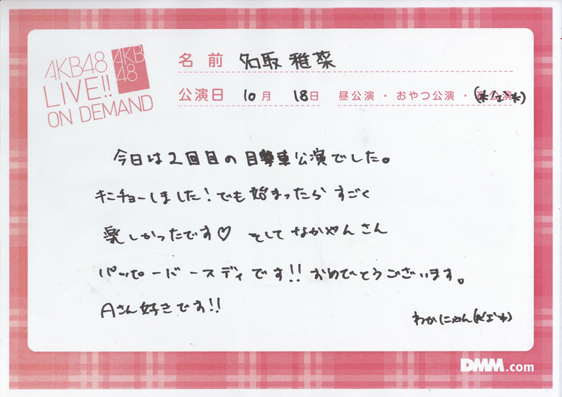 AKB48
LIVE!!
ON DEMAND
AKB
48
名前 名取稚菜
公演日 10月 18日 昼公演・おやつ公演・
今日は2回目の目撃車公演でした。
キンチョーしました!でも始まったら すごく
楽しかったです♡ そして なかやんさん
ハッピーバースディです!!おめでとうございます。
Aさん好きです!!
わかにゃん
DMM.com